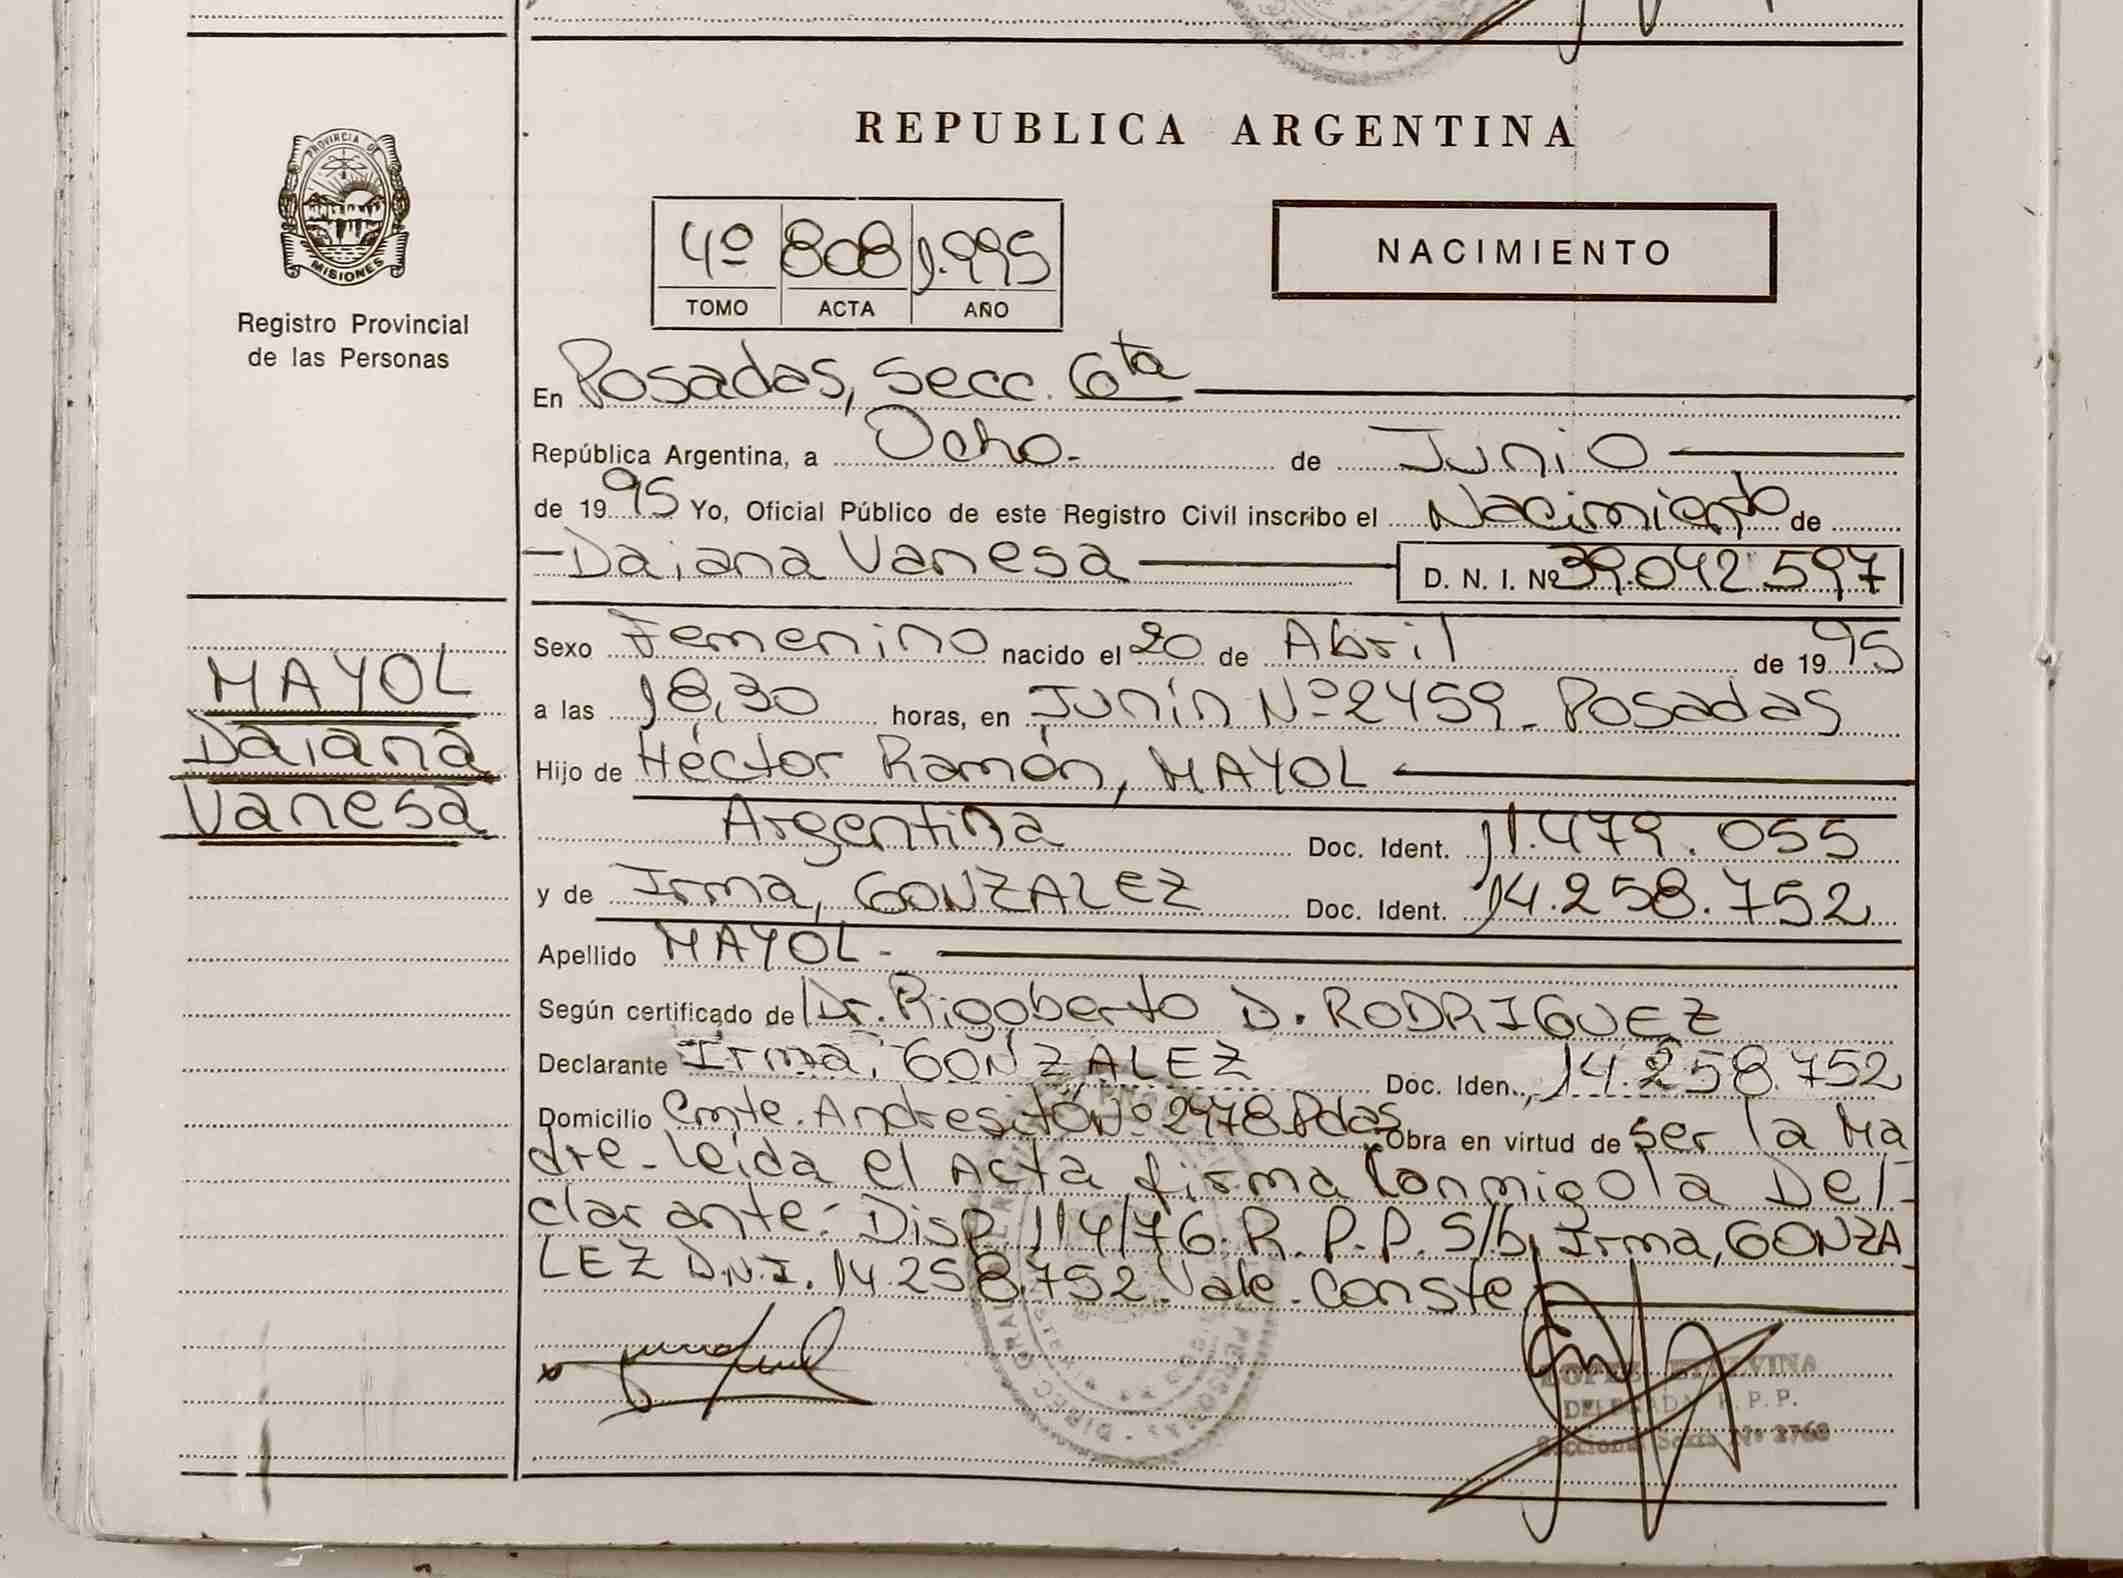 REPUBLICA ARGENTINA
PROVINCIA DE
MISIONES
Registro Provincial
de las Personas
4º 808 1.995
TOMO ACTA AÑO
NACIMIENTO
En Posadas, Secc. 6ta
República Argentina, a Ocho.- de Junio
de 1995 Yo, Oficial Público de este Registro Civil inscribo el Nacimiento de
Daiana Vanesa D. N. I. Nº 39.042.597
MAYOL
Daiana
Vanesa
Sexo Femenino nacido el 20 de Abril de 1995
a las 18,30 horas, en Junín Nº 2459 - Posadas
Hijo de Héctor Ramón, MAYOL
Argentina Doc. Ident. 11.479.055
y de Irma, GONZALEZ Doc. Ident. 14.258.752
Apellido MAYOL -
Según certificado de Dr. Rigoberto D. RODRIGUEZ
Declarante Irma, GONZALEZ Doc. Iden. 14.258.752
Domicilio Cmte. Andresito Nº 2478 Pdas Obra en virtud de ser la Ma
dre - leída el Acta firma Conmigo la De/-
clarante: Disp. 114/76. R. P. P. S/b, Irma, GONZA
LEZ D.N.I. 14.258.752 Vale - Conste
LOPEZ ETELVINA
DELEGADA R. P. P.
Seccional Sexta Nº